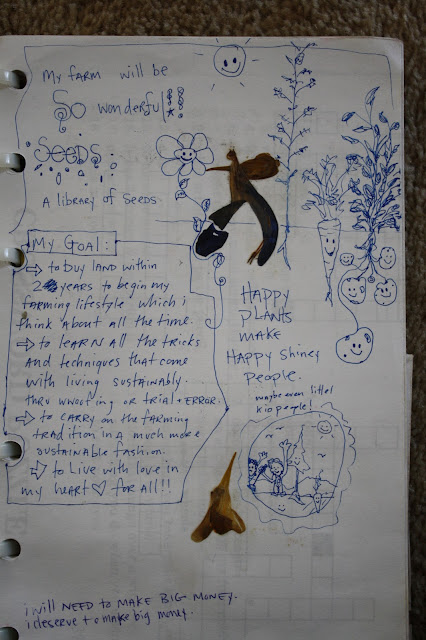 My farm will be
So wonderful!!!
SEEDS:
A library of seeds
My Goal:
→ to buy land within
2 years to begin my
farming lifestyle which i
think about all the time.
→ to LEARN all the tricks
and techniques that come
with living sustainably.
thru wwoofing or trial + ERROR.
→ to CARRY on the farming
tradition in a much more
sustainable fashion.
→ to Live with love in
my heart ♡ for all!!
HAPPY
PLANTS
MAKE
HAPPY Shiney
People.
maybe even little!
kid people!
i will NEED to MAKE BIG MONEY.
i deserve to make big money.